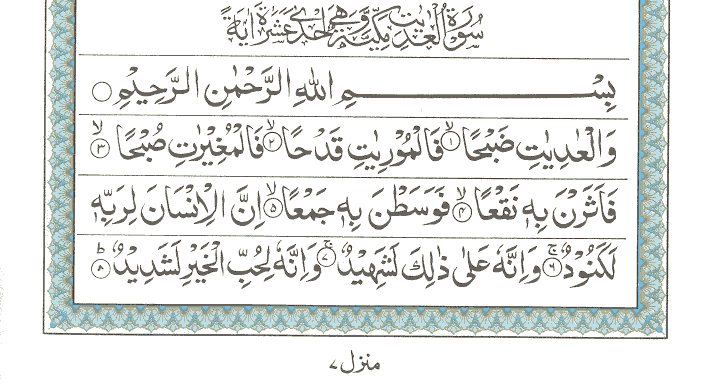 سُوْرَةُ الْعٰدِيٰتِ مَكِّيَّةٌ وَّهِيَ اِحْدٰى عَشْرَةَ اٰيَةً
بِسْمِ اللهِ الرَّحْمٰنِ الرَّحِيْمِ
وَالْعٰدِيٰتِ ضَبْحًا ۙ﴿۱﴾ فَالْمُوْرِيٰتِ قَدْحًا ۙ﴿۲﴾ فَالْمُغِيْرٰتِ صُبْحًا ۙ﴿۳﴾
فَاَثَرْنَ بِهٖ نَقْعًا ۙ﴿۴﴾ فَوَسَطْنَ بِهٖ جَمْعًا ۙ﴿۵﴾ اِنَّ الْاِنْسَانَ لِرَبِّهٖ
لَكَنُوْدٌ ۚ﴿۶﴾ وَاِنَّهٗ عَلٰى ذٰلِكَ لَشَهِيْدٌ ۚ﴿۷﴾ وَاِنَّهٗ لِحُبِّ الْخَيْرِ لَشَدِيْدٌ ؕ﴿۸﴾
منزل ۷